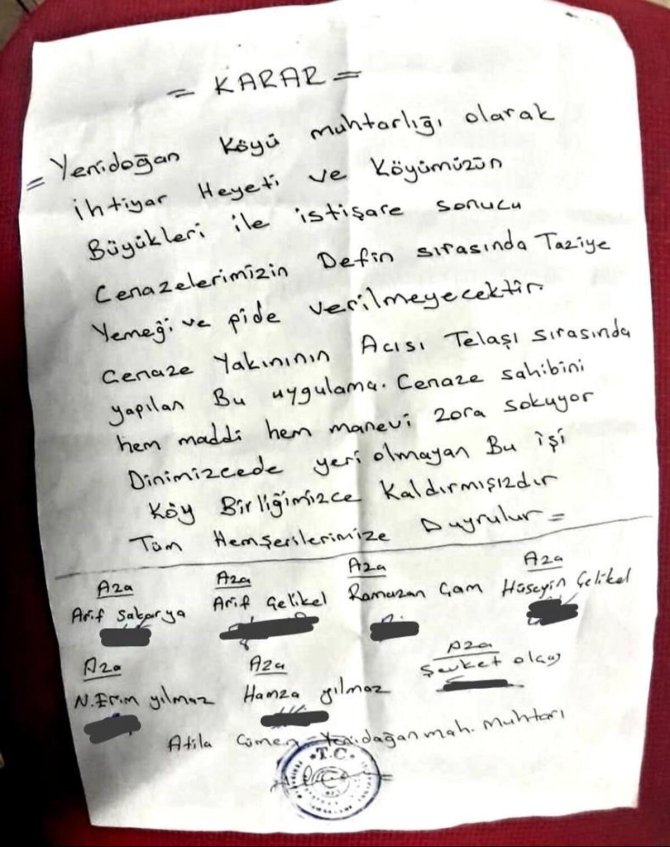 = KARAR =
= Yenidoğan Köyü muhtarlığı olarak
ihtiyar Heyeti ve Köyümüzün
Büyükleri ile istişare sonucu
Cenazelerimizin Defin sırasında Taziye
Yemeği ve pide verilmeyecektir
Cenaze Yakınının Acısı Telaşı sırasında
yapılan Bu uygulama. Cenaze sahibini
hem maddi hem manevi zora sokuyor
Dinimizcede yeri olmayan Bu işi
Köy Birliğimizce Kaldırmışızdır
Tüm Hemşerilerimize Duyrulur =
Aza Aza Aza Aza
Arif Sakarya Arif Çelikel Ramazan Çam Hüseyin Çelikel
Aza Aza Aza
N.Erim yılmaz Hamza yılmaz Şevket
Atila Yenidağan mah. muhtarı
T.C